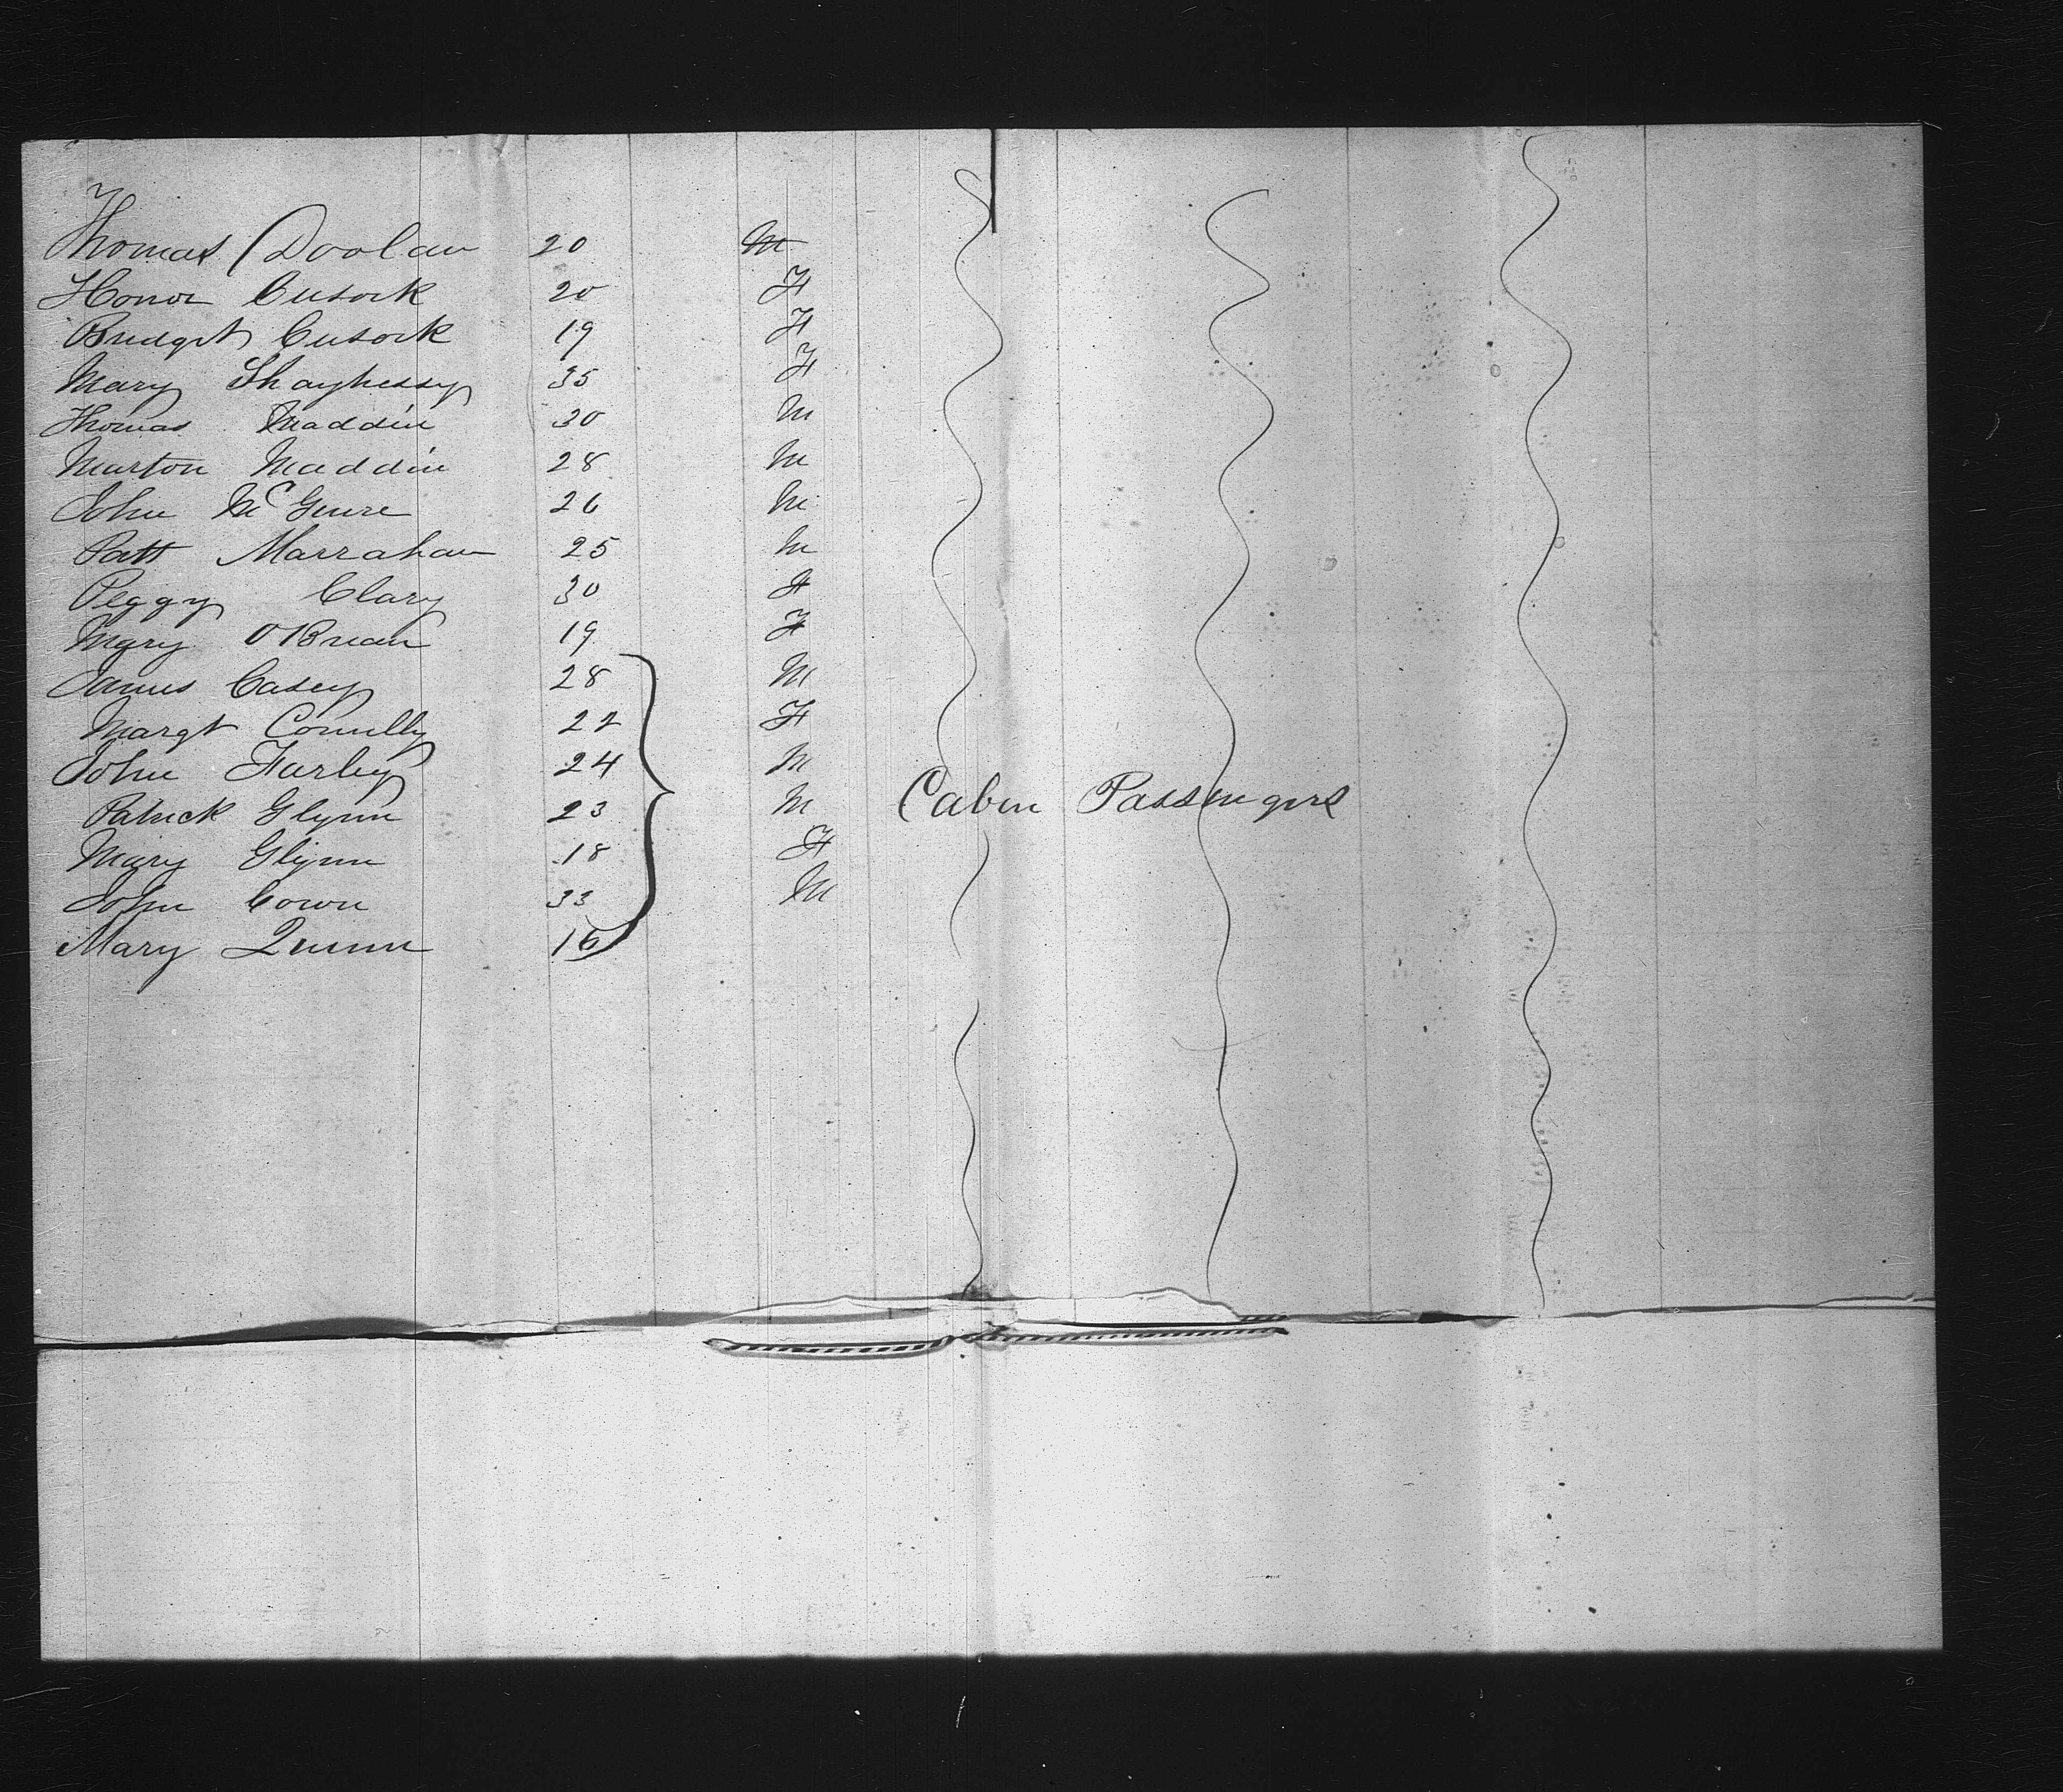 Thomas Doolan 20 M
Honor Cusock 20 F
Bridget Cusock 19 F
Mary Shaghessy 35 F
Thomas Maddin 30 M
Marton Maddin 28 M
John McGuire 26 M
Patt Marrahan 25 M
Peggy Clary 30 F
Mary O'Brian 19 F
James Casey 28 M
Margt Connilly 22 F
John Farley 24 M
Patrick Glynn 23 M Cabin Passengers
Mary Glynn 18 F
John Cown 33 M
Mary Quinn 16